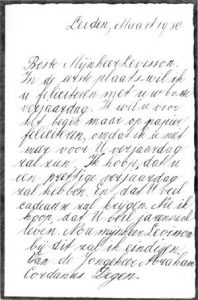 Leiden, Maart 1930.
Beste Mijnheer Levisson.
In de eerste plaats wil ik
u feliciteeren met uw
verjaardag. Ik wil u voor
het begin maar op papier
feliciteeren, omdat ik u met
mag voor u verjaardag
zal zien. Ik hoop, dat u
een prettige verjaardag
zal hebben. En dat U veel
cadeaux zal krijgen. Nu ik
hoop, dat U veel jaren zal
leven. Nou mijnheer Levisson
bij dit zal ik eindigen.
Van de Jongeheer Abraham
Cordanus Degen.